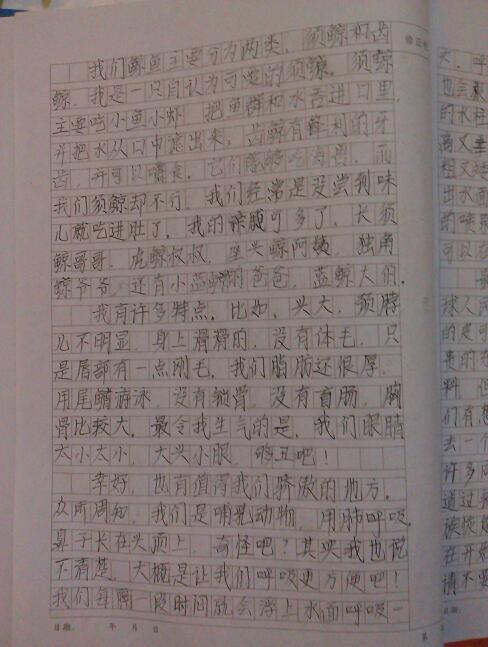 我们鲸鱼主要分为两类，须鲸和齿
鲸。我是一只自认为可爱的须鲸。须鲸
主要吃小鱼小虾，把鱼群和水吞进口里，
并把水从口中滤出来。齿鲸有锋利的牙
齿，并可以嚼食。它们吃海兽。而
我们须鲸却不行。我们经常是没尝到味
儿就吃进肚了。我的亲戚可多了，长须
鲸哥哥，虎鲸叔叔，座头鲸阿姨，独角
鲸爷爷，还有小蓝鲸的爸爸，蓝鲸大伯。
我有许多特点。比如，头大，颈脖
儿不明显，身上滑滑的，没有体毛，只
是唇部有一点刚毛。我们脂肪还很厚，
用尾鳍游泳，没有锁骨，没有盲肠，胸
骨比较大。最令我生气的是，我们眼睛
太小太小，大头小眼，够丑吧！
幸好，也有值得我们骄傲的地方。
众所周知，我们是哺乳动物，用肺呼吸，
鼻子长在头顶上，奇怪吧？其实我也说
不清楚，大概是让我们呼吸更方便吧！
我们每隔一段时间就会浮上水面呼吸一
日期： 年 月 日
第
修正
犬，呼
也会
的水柱
高又
粗又
出水面
的喷
可以
球人
的是可
贵的
料，但
们有
去一个
许多
道过
族
在开始
请不要
日期：